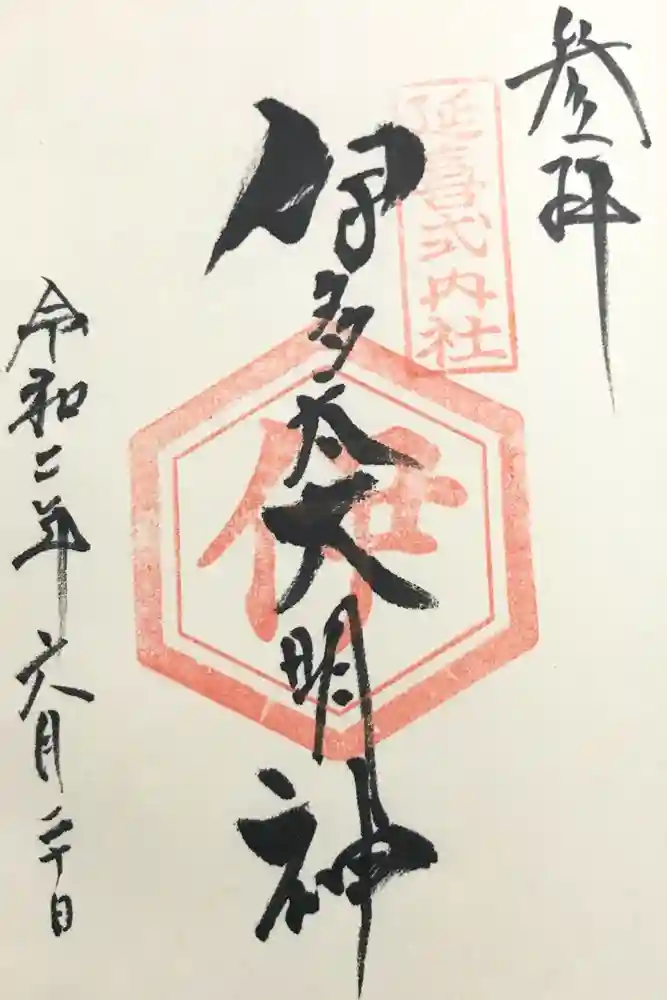 参拝
延喜式内社
伊多太大明神
令和二年六月二十日